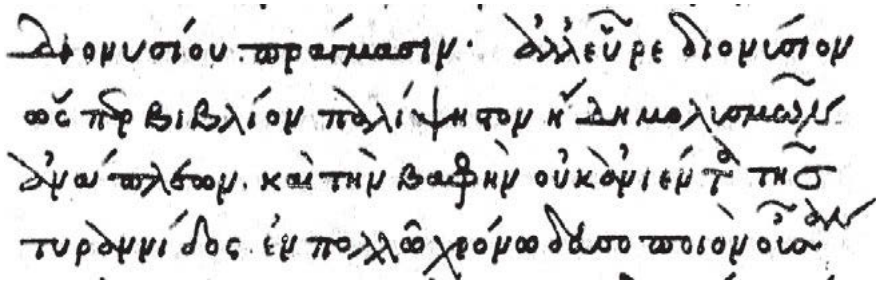 Διονυσίου πράγμασιν· ἀλλ' εὗρε διονύσιον
ὥσπερ βιβλίον παλίψηστον ἤδη μολυσμῶν
ἀνάπλεων. καὶ τὴν βαφὴν οὐκ ἀνιέντα τῆς
τυραννίδος ἐν πολλῶ χρόνω δευσοποιὸν οὖσαν